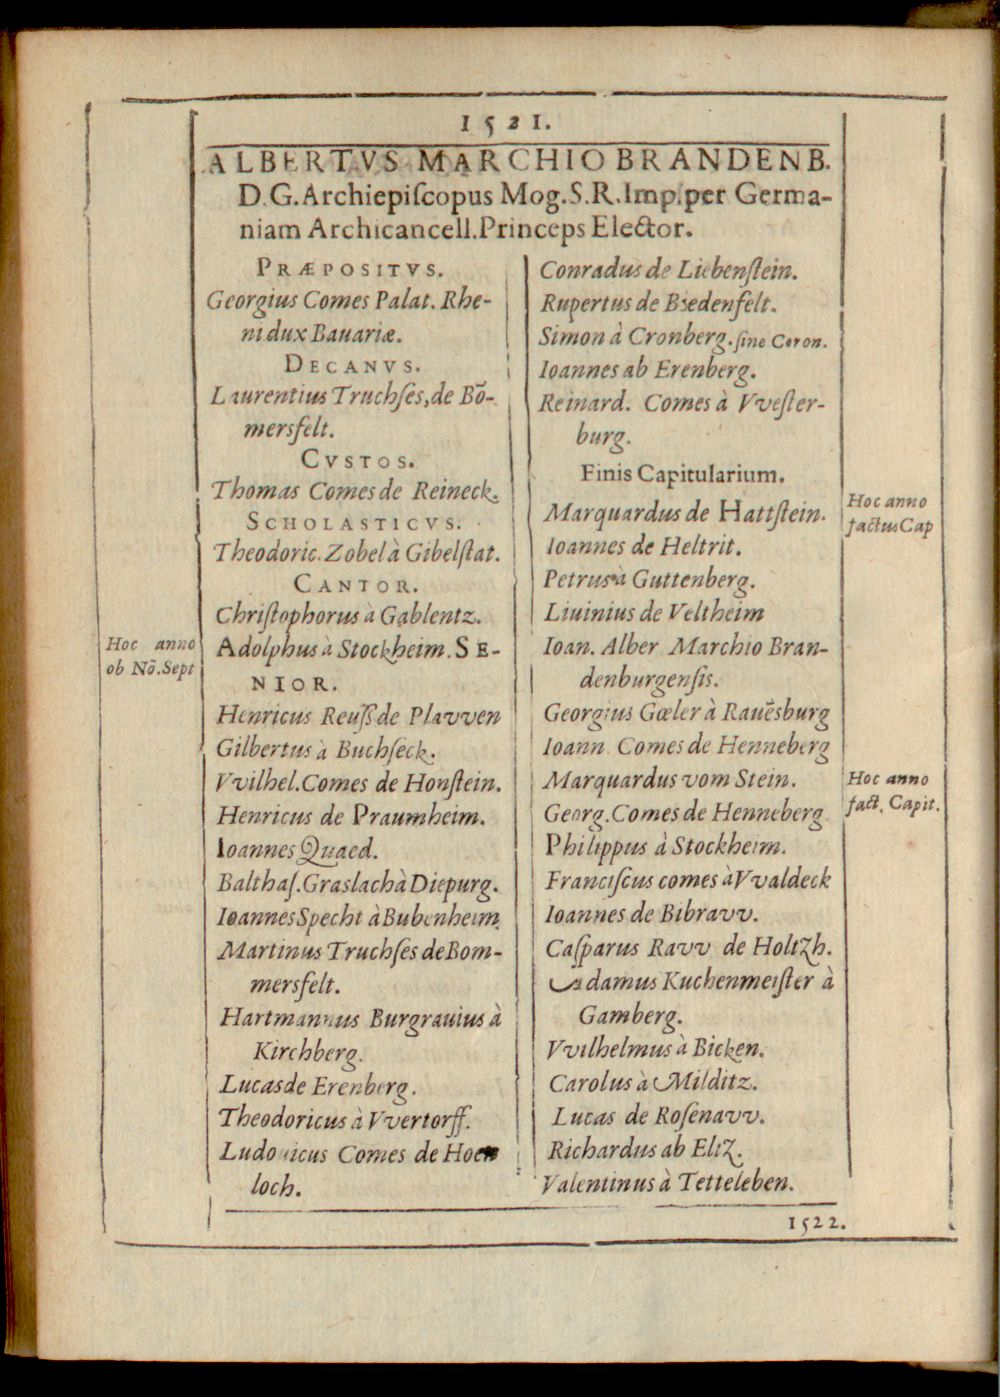 1521.
ALBERTVS MARCHIO BRANDENB.
D.G. Archiepiſcopus Mog. S.R. Imp. per Germa-
niam Archicancell. Princeps Elector.
PRÆPOSITVS.
Georgius Comes Palat. Rhe-
ni dux Bauariæ.
DECANVS.
Laurentius Truchſes, de Bō-
mersfelt.
CVSTOS.
Thomas Comes de Reineck.
SCHOLASTICVS.
Theodoric. Zobel à Gibelſtat.
CANTOR.
Chriſtophorus à Gablentz.
Hoc anno
ob Nō. Sept
Adolphus à Stockheim. SE-
NIOR.
Henricus Reuſs de Plavven
Gilbertus à Buchſeck.
Vvilhel. Comes de Honſtein.
Henricus de Praumheim.
Ioannes Quaed.
Balthaſ. Graslach à Diepurg.
Ioannes Specht à Bubenheim
Martinus Truchſes de Bom-
mersfelt.
Hartmannus Burgrauius à
Kirchberg.
Lucas de Erenberg.
Theodoricus à Vvertorff.
Ludouicus Comes de Hoen
loch.
Conradus de Liebenſtein.
Rupertus de Biedenfelt.
Simon à Cronberg. ſine Coron.
Ioannes ab Erenberg.
Reinard. Comes à Vveſter-
burg.
Finis Capitularium.
Marquardus de Hattſtein.
Hoc anno
factus Cap
Ioannes de Heltrit.
Petrus à Guttenberg.
Liuinius de Veltheim
Ioan. Alber Marchio Bran-
denburgenſis.
Georgius Gœler à Rauēsburg
Ioann Comes de Henneberg
Marquardus vom Stein.
Hoc anno
fact. Capit.
Georg. Comes de Henneberg
Philippus à Stockheim.
Franciſcus comes à Vvaldeck
Ioannes de Bibravv.
Caſparus Ravv de Holtzh.
Adamus Kuchenmeiſter à
Gamberg.
Vvilhelmus à Bicken.
Carolus à Milditz.
Lucas de Roſenavv.
Richardus ab Eltz.
Valentinus à Tetteleben.
1522.